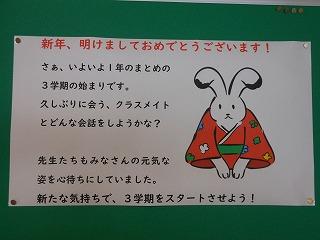 新年、明けましておめでとうございます！
さぁ、いよいよ１年のまとめの
３学期の始まりです。
久しぶりに会う、クラスメイト
とどんな会話をしようかな？
先生たちもみなさんの元気な
姿を心待ちにしていました。
新たな気持ちで、３学期をスタートさせよう！